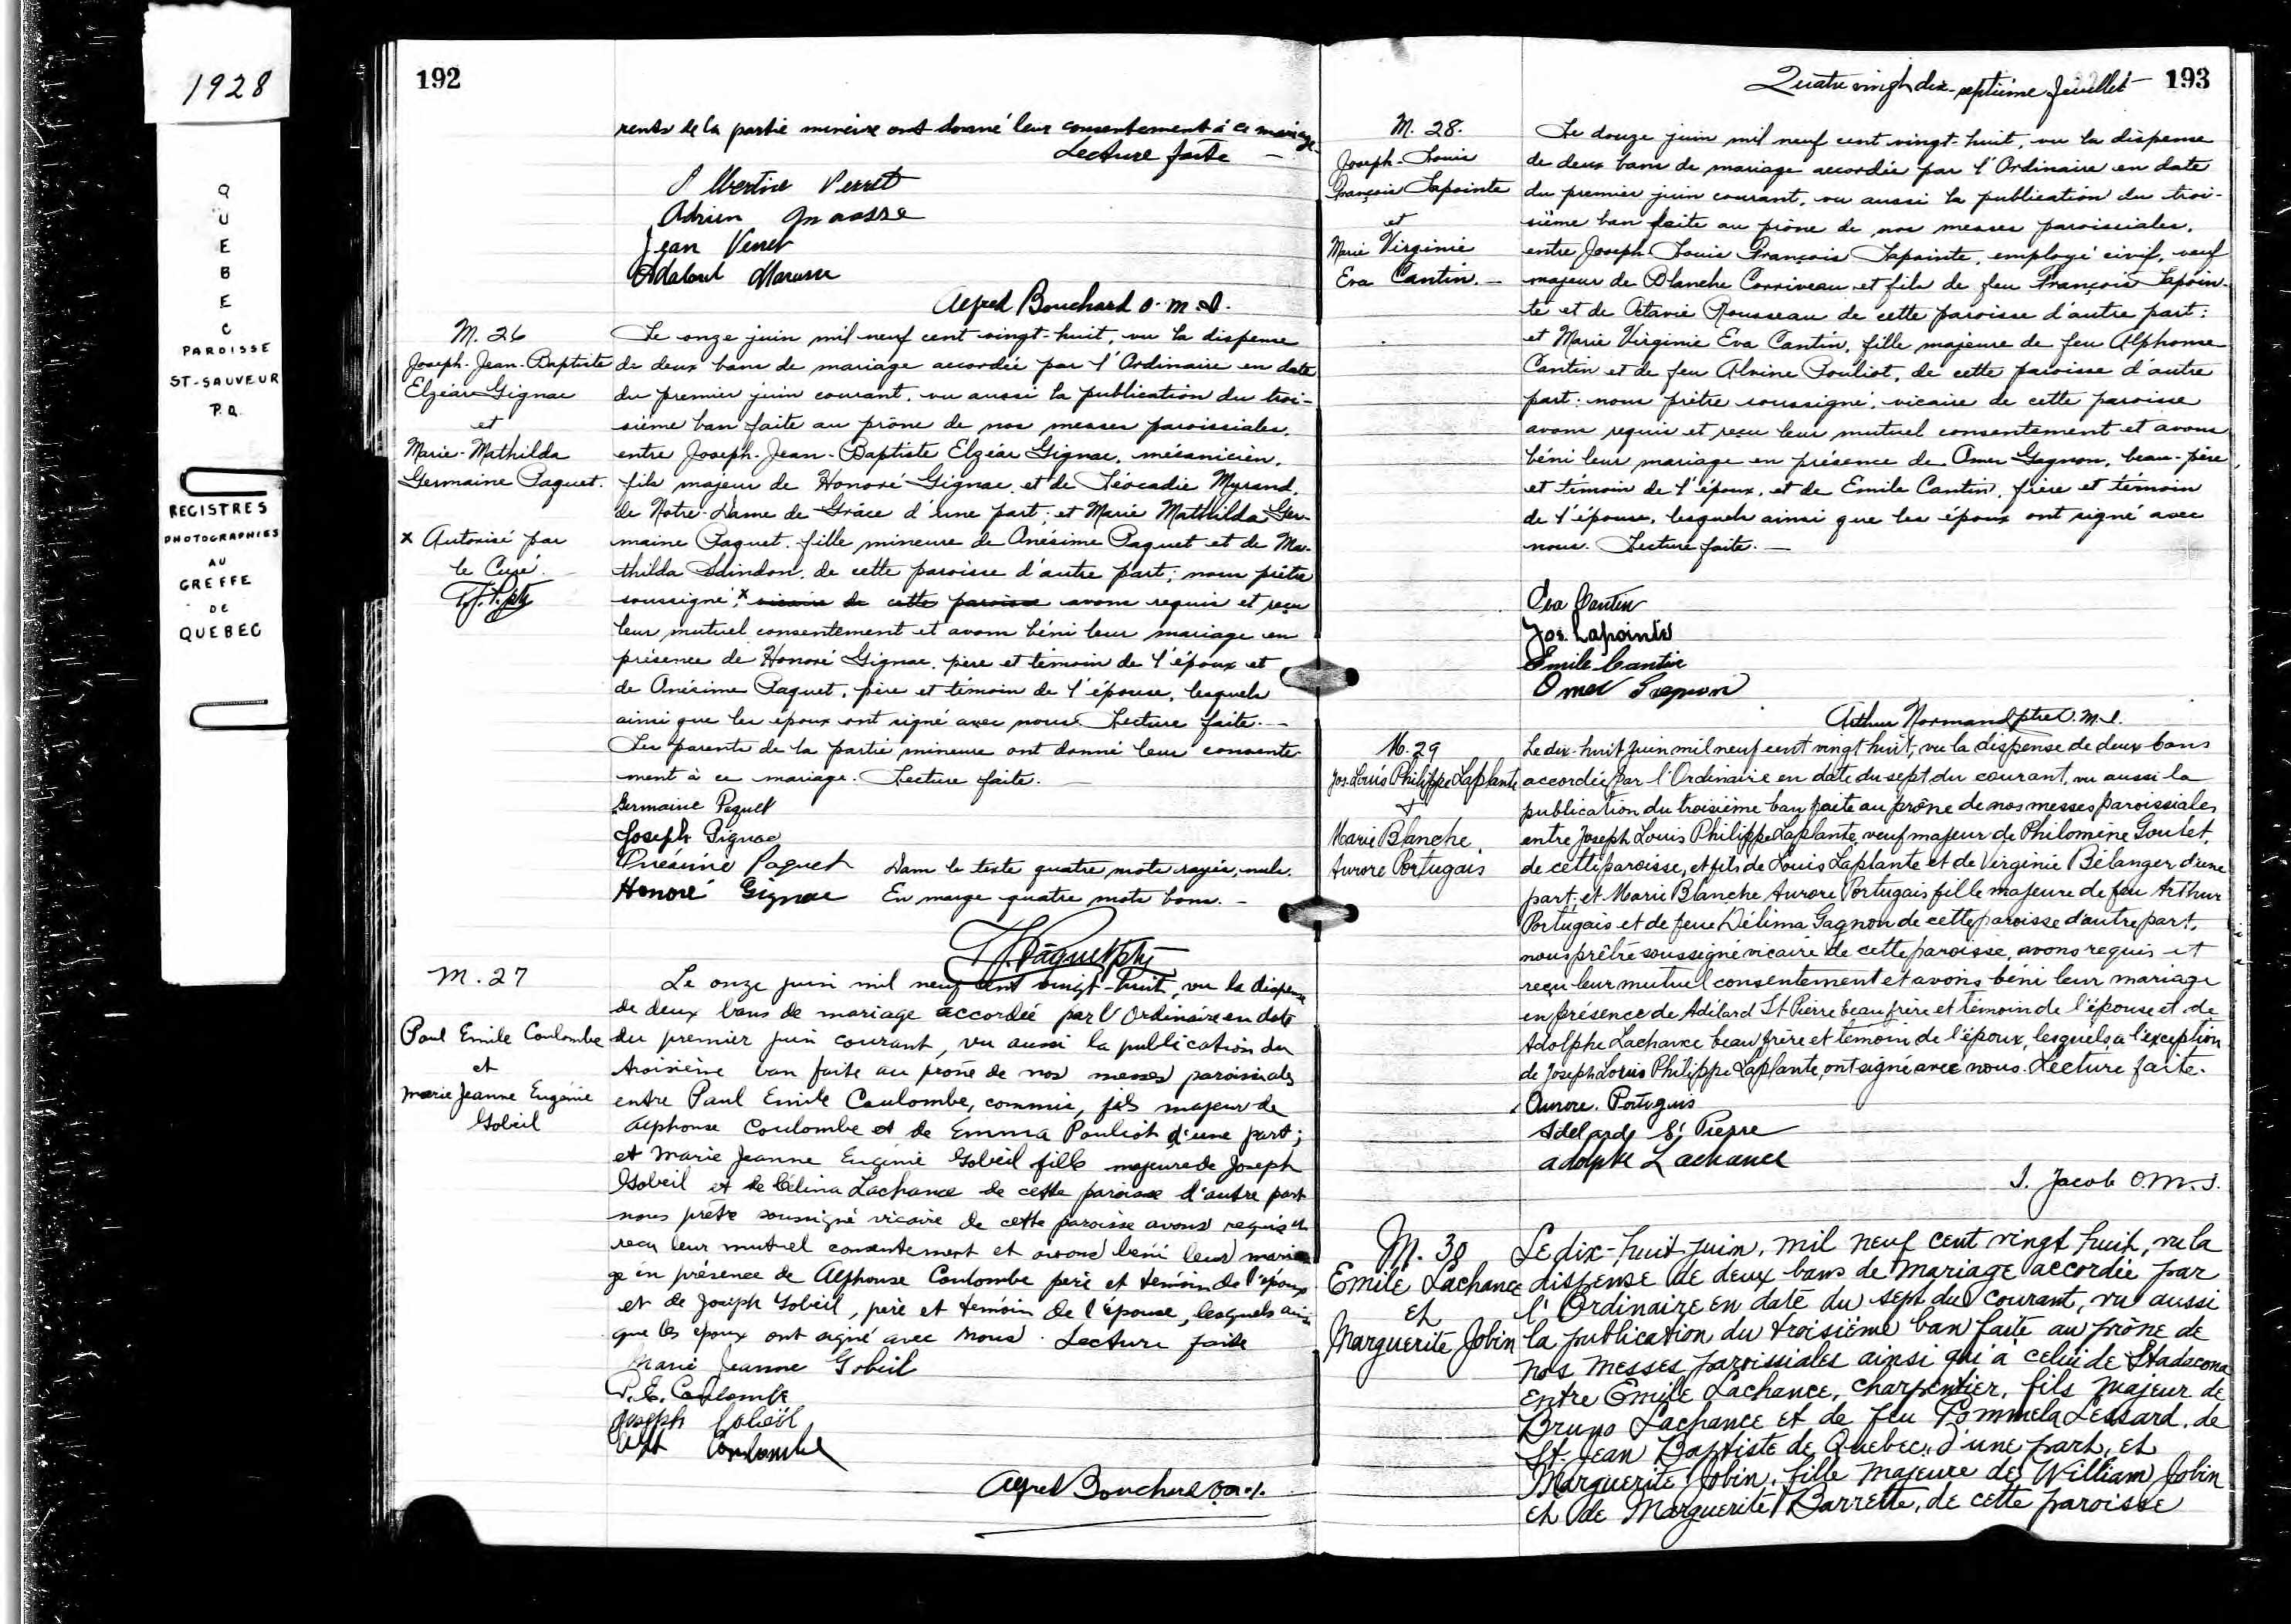 1928
QUEBEC
PAROISSE
ST-SAUVEUR
P.Q.
REGISTRES
PHOTOGRAPHIES
AU
GREFFE
DE
QUEBEC
192
rents de la partie mineure ont donné leur consentement à ce mariage
Lecture faite —
Albertine Verret
Adrien
Jean Verret
Alfred Bouchard o.m.I.
M. 26
Joseph-Jean-Baptiste
Elzéar Gignac
et
Marie-Mathilda
Germaine Paquet.
x Autorisé par
le Curé.
Le onze juin mil neuf cent vingt-huit, vu la dispense
de deux bans de mariage accordée par l'Ordinaire en date
du premier juin courant, vu aussi la publication du troi-
sième ban faite au prône de nos messes paroissiales,
entre Joseph-Jean-Baptiste Elzéar Gignac, mécanicien,
fils majeur de Honoré Gignac et de Léocadie Myrand,
de Notre-Dame de Grâce d'une part; et Marie Mathilda Ger-
maine Paquet, fille mineure de Onésime Paquet et de Ma-
thilda Dindon, de cette paroisse d'autre part; nous prêtre
soussigné, x vicaire de cette paroisse avons requis et reçu
leur mutuel consentement et avons béni leur mariage en
présence de Honoré Gignac, père et témoin de l'époux et
de Onésime Paquet, père et témoin de l'épouse, lesquels
ainsi que les époux ont signé avec nous. Lecture faite.—
Les parents de la partie mineure ont donné leur consente-
ment à ce mariage. Lecture faite.
Germaine Paquet
Joseph Gignac
Onésime Paquet Dans le texte quatre mots rayés, nuls.
Honoré Gignac En marge quatre mots bons. -
Paquet ptre
M. 27
Paul Emile Coulombe
et
Marie Jeanne Eugénie
Gobeil
Le onze juin mil neuf cent vingt-huit, vu la dispense
de deux bans de mariage accordée par l'Ordinaire en date
du premier juin courant, vu aussi la publication du
troisième ban faite au prône de nos messes paroissiales
entre Paul Emile Coulombe, commis, fils majeur de
Alphonse Coulombe et de Emma Pouliot d'une part;
et Marie Jeanne Eugénie Gobeil fille majeure de Joseph
Gobeil et de Célina Lachance de cette paroisse d'autre part
nous prêtre soussigné vicaire de cette paroisse avons requis et
reçu leur mutuel consentement et avons béni leur maria
ge en présence de Alphonse Coulombe père et témoin de l'époux
et de Joseph Gobeil, père et témoin de l'épouse, lesquels ainsi
que les époux ont signé avec nous. Lecture faite
Marie Jeanne Gobeil
P.E. Coulombe
Joseph Gobeil
Alph Coulombe
Alfred Bouchard o.m.I.
Quatre vingt dix-septième feuillet 193
M. 28.
Joseph-Louis
François Lapointe
et
Marie Virginie
Eva Cantin. —
Le douze juin mil neuf cent vingt-huit, vu la dispense
de deux bans de mariage accordée par l'Ordinaire en date
du premier juin courant, vu aussi la publication du troi-
sième ban faite au prône de nos messes paroissiales,
entre Joseph Louis François Lapointe, employé civil, veuf
majeur de Blanche Corriveau et fils de feu François Lapoin-
te et de Octavie Rousseau de cette paroisse d'autre part:
et Marie Virginie Eva Cantin, fille majeure de feu Alphonse
Cantin et de feu Alvine Pouliot, de cette paroisse d'autre
part: nous prêtre soussigné, vicaire de cette paroisse
avons requis et reçu leur mutuel consentement et avons
béni leur mariage en présence de Omer Gagnon, beau-père
et témoin de l'époux, et de Emile Cantin, frère et témoin
de l'épouse, lesquels ainsi que les époux ont signé avec
nous. Lecture faite. —
Eva Cantin
Jos. Lapointe
Emile Cantin
Omer Gagnon
Arthur Normand ptre O.M.I.
M. 29
Jos. Louis Philippe Laplante
&
Marie Blanche
Aurore Portugais
Le dix-huit juin mil neuf cent vingt huit, vu la dispense de deux bans
accordée par l'Ordinaire en date du sept du courant, vu aussi la
publication du troisième ban faite au prône de nos messes paroissiales
entre Joseph Louis Philippe Laplante, veuf majeur de Philomène Goulet,
de cette paroisse, et fils de Louis Laplante et de Virginie Bélanger d'une
part; et Marie Blanche Aurore Portugais fille majeure de feu Arthur
Portugais et de feue Délima Gagnon de cette paroisse d'autre part,
nous prêtre soussigné vicaire de cette paroisse, avons requis et
reçu leur mutuel consentement et avons béni leur mariage
en présence de Adélard St Pierre beau frère et témoin de l'épouse et de
Adolphe Lachance beau frère et témoin de l'époux, lesquels, à l'exception
de Joseph Louis Philippe Laplante, ont signé avec nous. Lecture faite.
Aurore Portugais
Adelard St Pierre
Adolphe Lachance
J. Jacob O.M.I.
M. 30
Emile Lachance
et
Marguerite Jobin
Le dix-huit juin, mil neuf cent vingt huit, vu la
dispense de deux bans de mariage accordée par
l'Ordinaire en date du sept du courant, vu aussi
la publication du troisième ban faite au prône de
nos messes paroissiales ainsi qu'à celui de Stadacona
entre Emile Lachance, charpentier, fils majeur de
Bruno Lachance et de feu Pommela Lessard, de
St. Jean Baptiste de Quebec, d'une part, et
Marguerite Jobin, fille majeure de William Jobin
et de Marguerite Barrette, de cette paroisse